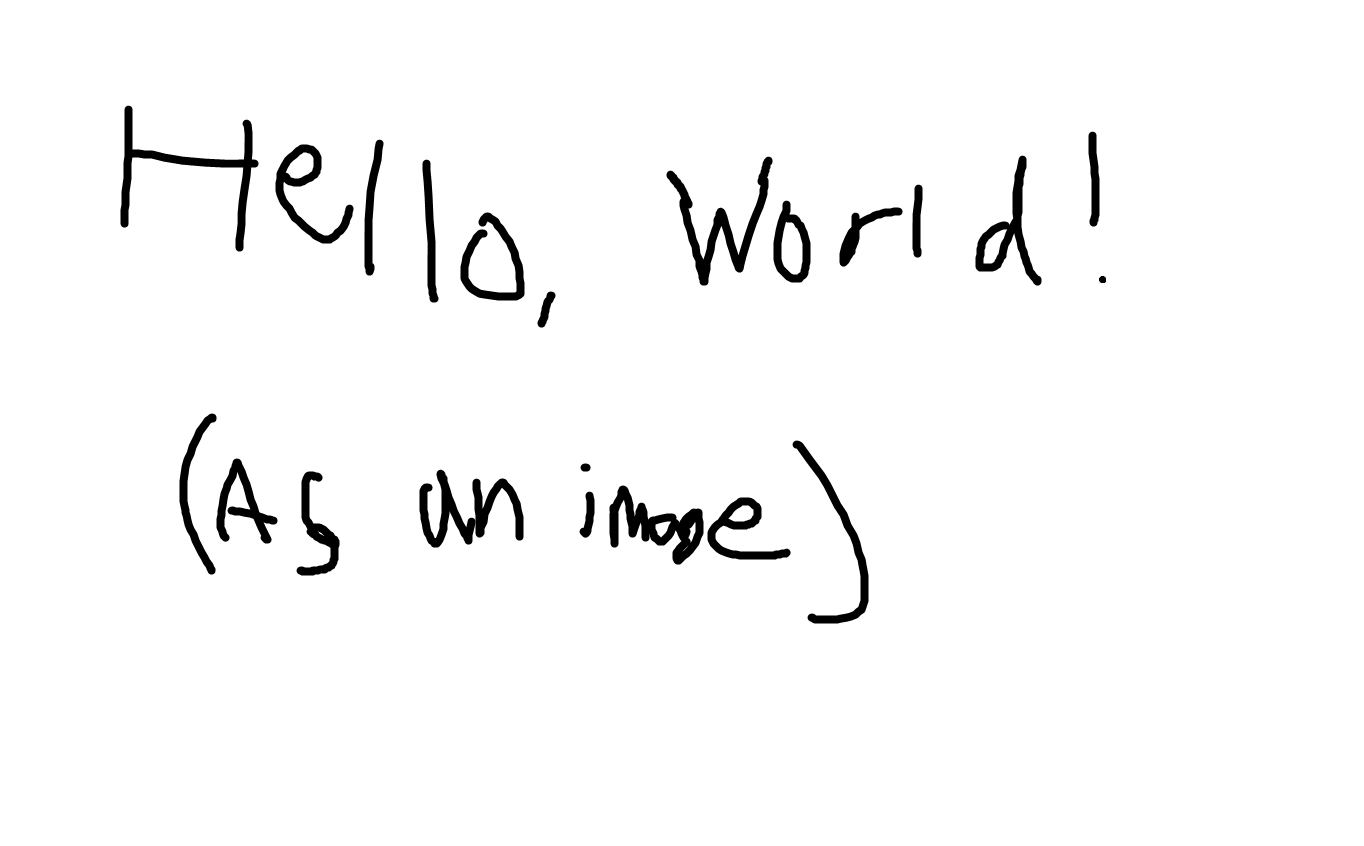 Hello, World!
(As an image)